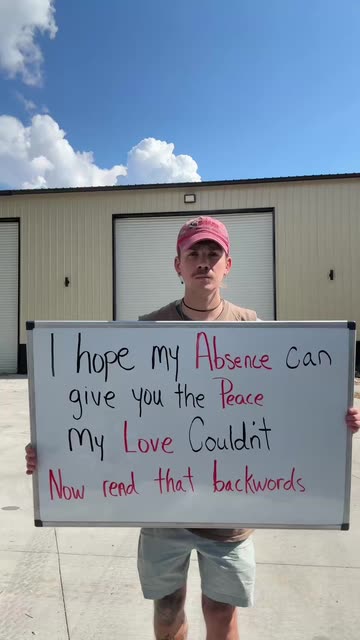 I hope my Absence can
give you the Peace
My Love Couldn't
Now read that backwords